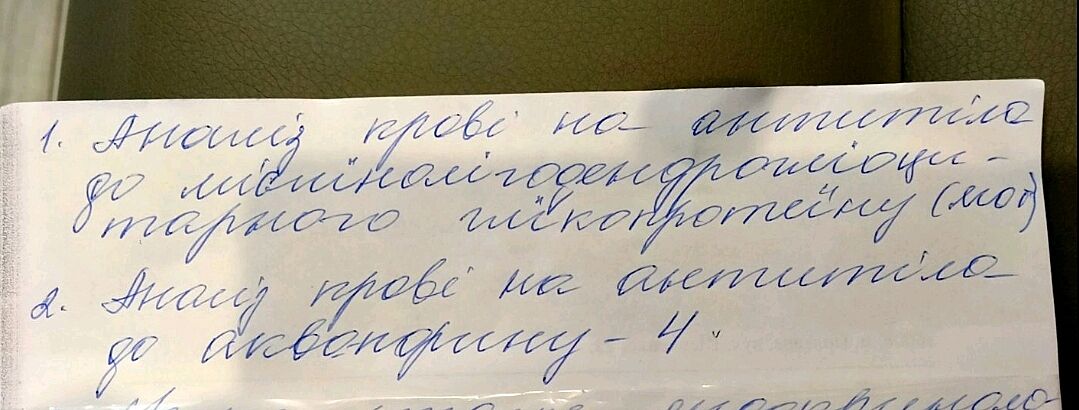 1. Аналіз крові на антитіла
до мієліноліго­дендрогліоци-
тарного глікопротеїну (мог)
2. Аналіз крові на антитіла
до аквапорину - 4